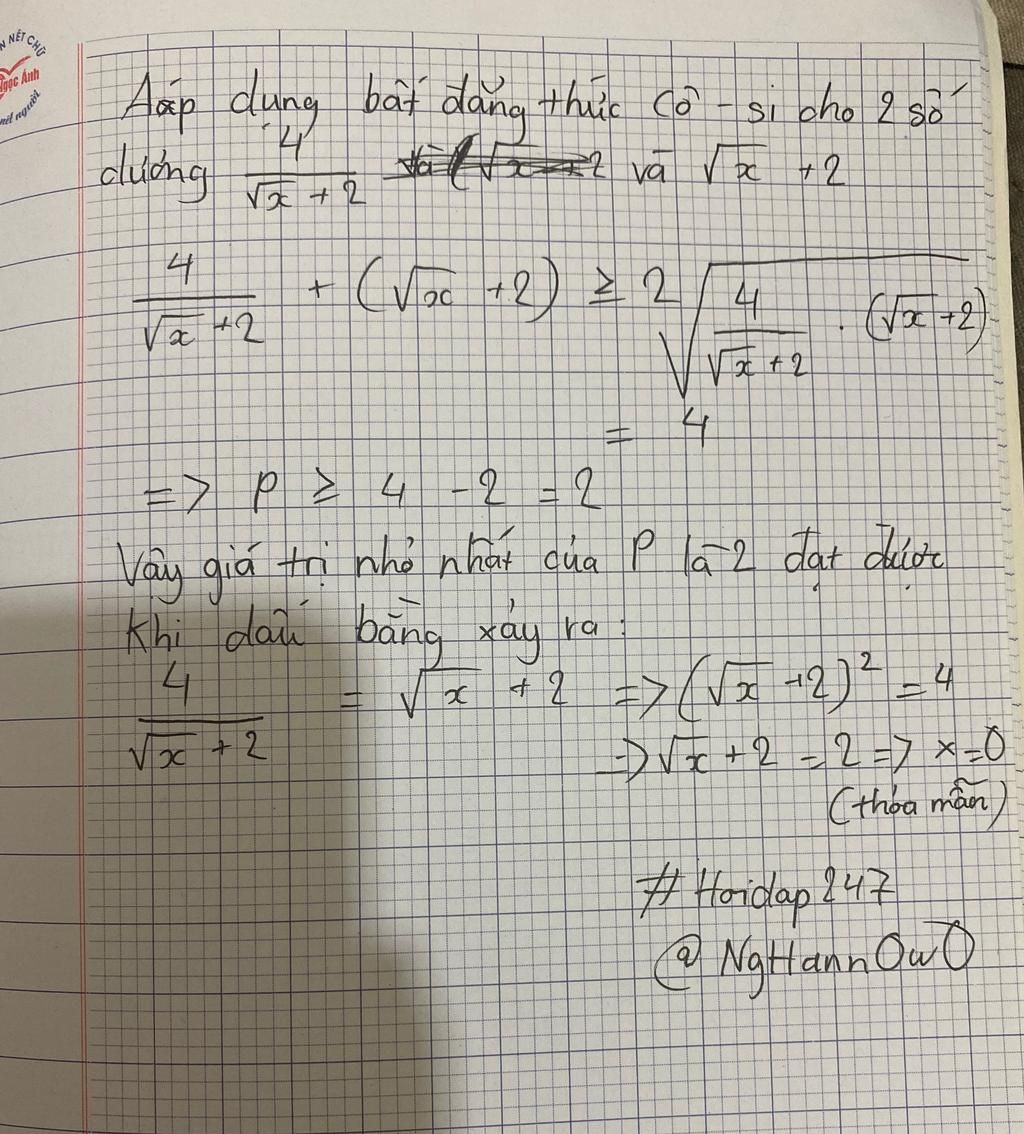 N NÉT CHỮ
Ngọc Ánh
nét người
Aáp dụng bất đẳng thức Cô-si cho 2 số
dương 4/(√x + 2) và √x + 2
4/(√x + 2) + (√x + 2) ≥ 2√(4/(√x + 2) . (√x + 2))
= 4
=> P ≥ 4 - 2 = 2
Vậy giá trị nhỏ nhất của P là 2 đạt được
khi dấu bằng xảy ra:
4/(√x + 2) = √x + 2 => (√x + 2)² = 4
=> √x + 2 = 2 => x = 0
(thỏa mãn)
# Hoidap247
@ NgHannOwO